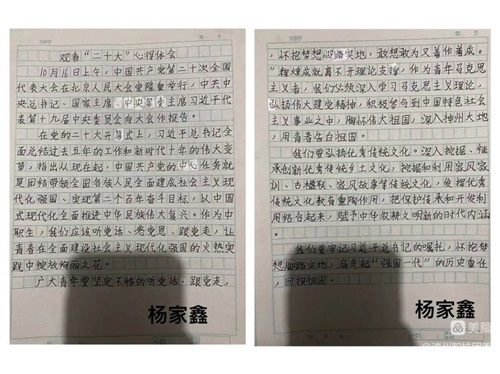 观看“二十大”心得体会
10月16日上午，中国共产党第二十次全国
代表大会在北京人民大会堂隆重举行，中共中
央总书记、国家主席、中央军委主席习近平代
表第十九届中央委员会向大会作报告。
在党的二十大开幕式上，习近平总书记全
面总结过去五年的工作和新时代十年的伟大变
革，指出从现在起，中国共产党的中心任务就
是团结带领全国各族人民全面建成社会主义现
代化强国、实现第二个百年奋斗目标，以中国
式现代化全面推进中华民族伟大复兴。作为中
职生，我们应该听党话、感党恩、跟党走，让
青春在全面建设社会主义现代化强国的火热实
践中绽放绚丽之花。
广大青年要坚定不移的听党话、跟党走，
杨家鑫
怀抱梦想脚踏实地，敢想敢为又善作善成。
“辉煌成就离不开理论支撑，作为青年马克思
主义者，我们必须深入学习马克思主义理论，
弘扬伟大建党精神，积极参与到中国特色社会
主义事业中，胸怀伟大祖国，深入神州大地
，用青春告白祖国。
我们要弘扬优秀传统文化。深入挖掘、继
承创新优秀传统乡土文化，挖掘和利用家风家
训、古楹联、家风故事等传统文化，发挥优秀
传统文化教育熏陶作用，把保护传承和开发利
用结合起来，赋予中华农耕文明新的时代内涵
。
我们要牢记习近平总书记的嘱托，怀抱梦
想脚踏实地，肩负起“强国一代”的历史重任
，回报祖国。
杨家鑫
美篇